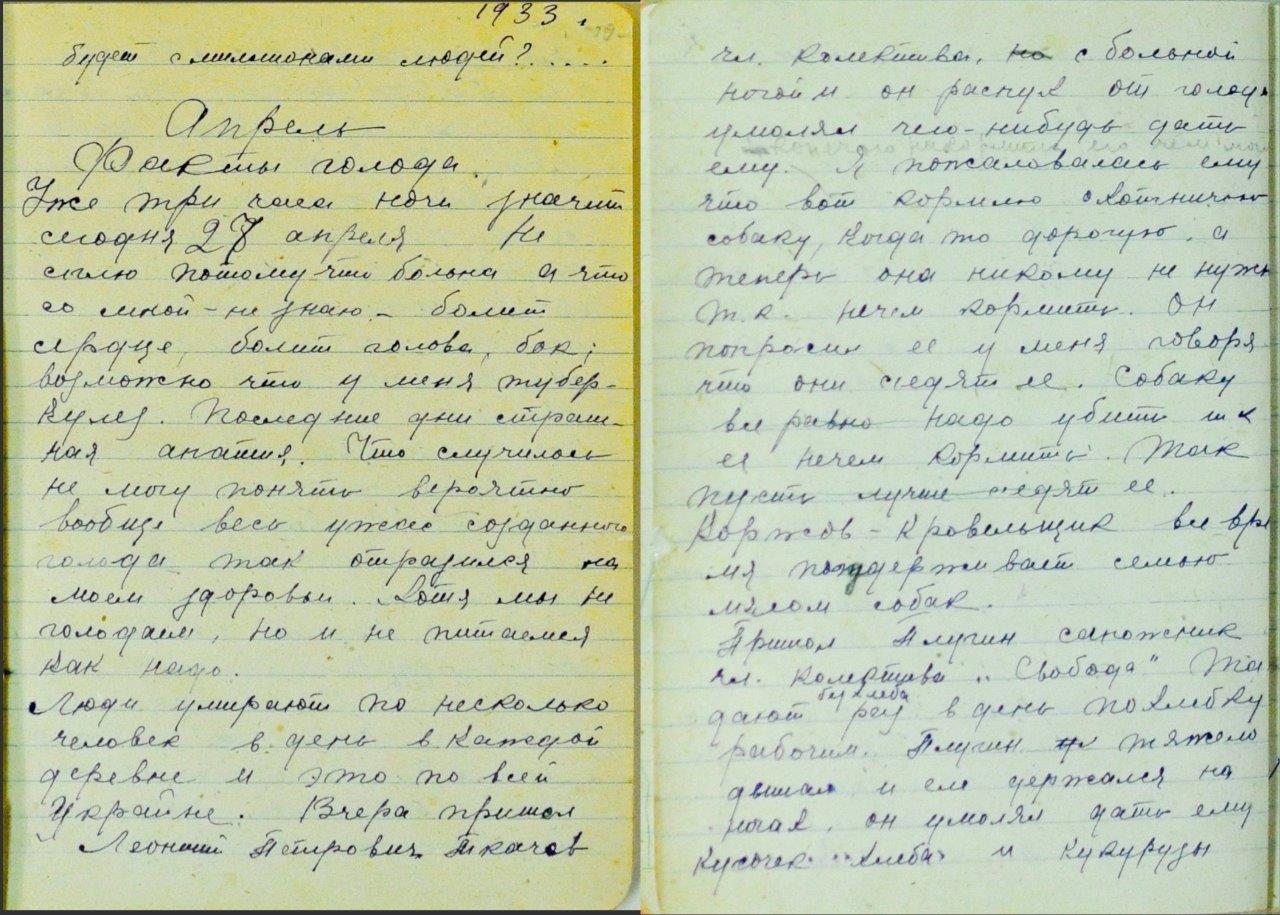 1933.
-19-
будет с миллионами людей?.....
Апрель
Факты голода.
Уже три часа ночи значит
сегодня 27 апреля Не
сплю потому-что больна а что
со мной - не знаю - болит
сердце, болит голова, бок;
возможно что у меня тубер-
кулез. Последние дни страш-
ная апатия. Что случилось
не могу понять вероятно
вообще весь ужас созданного
голода так отразился на
моем здоровьи. Хотя мы не
голодаем, но и не питаемся
как надо.
Люди умирают по несколько
человек в день в каждой
деревне и это по всей
Украйне. Вчера пришол
Леонтий Петрович Ткачов
чл. колектива, но с больной
ногой и он распух от голода
умолял чего-нибудь дать
ему. Я пожаловалась ему
что вот кормлю охотничью
собаку, когда то дорогую, а
теперь она никому не нужн
т.к. нечем кормить. Он
попросил ее у меня говоря
что они съедят ее. Собаку
все равно надо убить т к
ее нечем кормить. Так
пусть лучше съедят ее.
Коржов - Кровельщик все вре
мя поддерживает семью
мясом собак.
Пришол Плугин сапожник
чл. колектива "Свобода" Та
без хлеба
дают раз в день похлебку
рабочим. Плугин тяжело
дышал и еле держался на
ногах, он умолял дать ему
кусочек "хлеба" и кукурузы